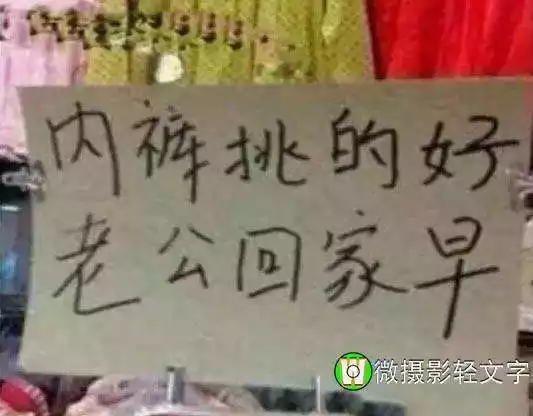 内裤挑的好
老公回家早
微摄影轻文字